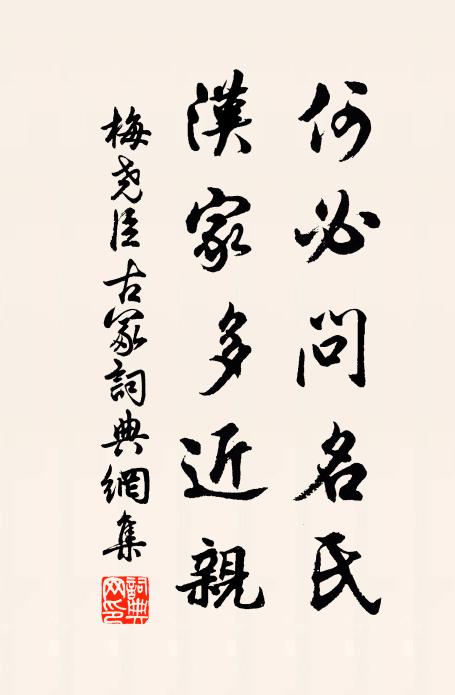 何必問名氏
漢家多近親
梅堯臣古冢詞典網集
詞典网印